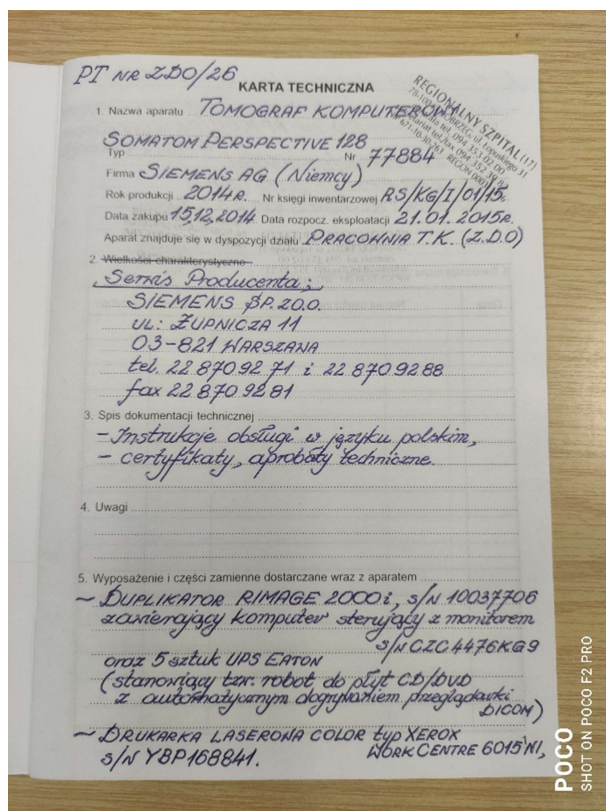 PT NR ZDO/26
KARTA TECHNICZNA
1. Nazwa aparatu TOMOGRAF KOMPUTEROWY
SOMATOM PERSPECTIVE 128
Typ Nr 77884
Firma SIEMENS AG (Niemcy)
Rok produkcji 2014R. Nr księgi inwentarzowej RS/KG/I/01/15.
Data zakupu 15,12,2014 Data rozpocz. eksploatacji 21.01.2015R.
Aparat znajduje się w dyspozycji działu PRACOWNIA T.K. (Z.D.O)
REGIONALNY SZPITAL (17)
2. Wielkości charakterystyczne
Serwis Producenta:
SIEMENS SP. ZO.O.
UL: ŻUPNICZA 11
03-821 WARSZAWA
tel. 22 870 92 71 i 22 870 92 88
fax 22 870 92 81
3. Spis dokumentacji technicznej
- Instrukcje obsługi w języku polskim,
- certyfikaty, aprobaty techniczne.
4. Uwagi
5. Wyposażenie i części zamienne dostarczane wraz z aparatem
~ DUPLIKATOR RIMAGE 2000i, S/N 10037706
zawierający komputer sterujący z monitorem
S/N CZC4476KG9
oraz 5 sztuk UPS EATON
(stanowiący tzw. robot do płyt CD/DVD
z automatycznym dogrywaniem przeglądarki
DICOM)
~ DRUKARKA LASEROWA COLOR typ XEROX
WORK CENTRE 6015 NI,
S/N YBP168841.
POCO
SHOT ON POCO F2 PRO